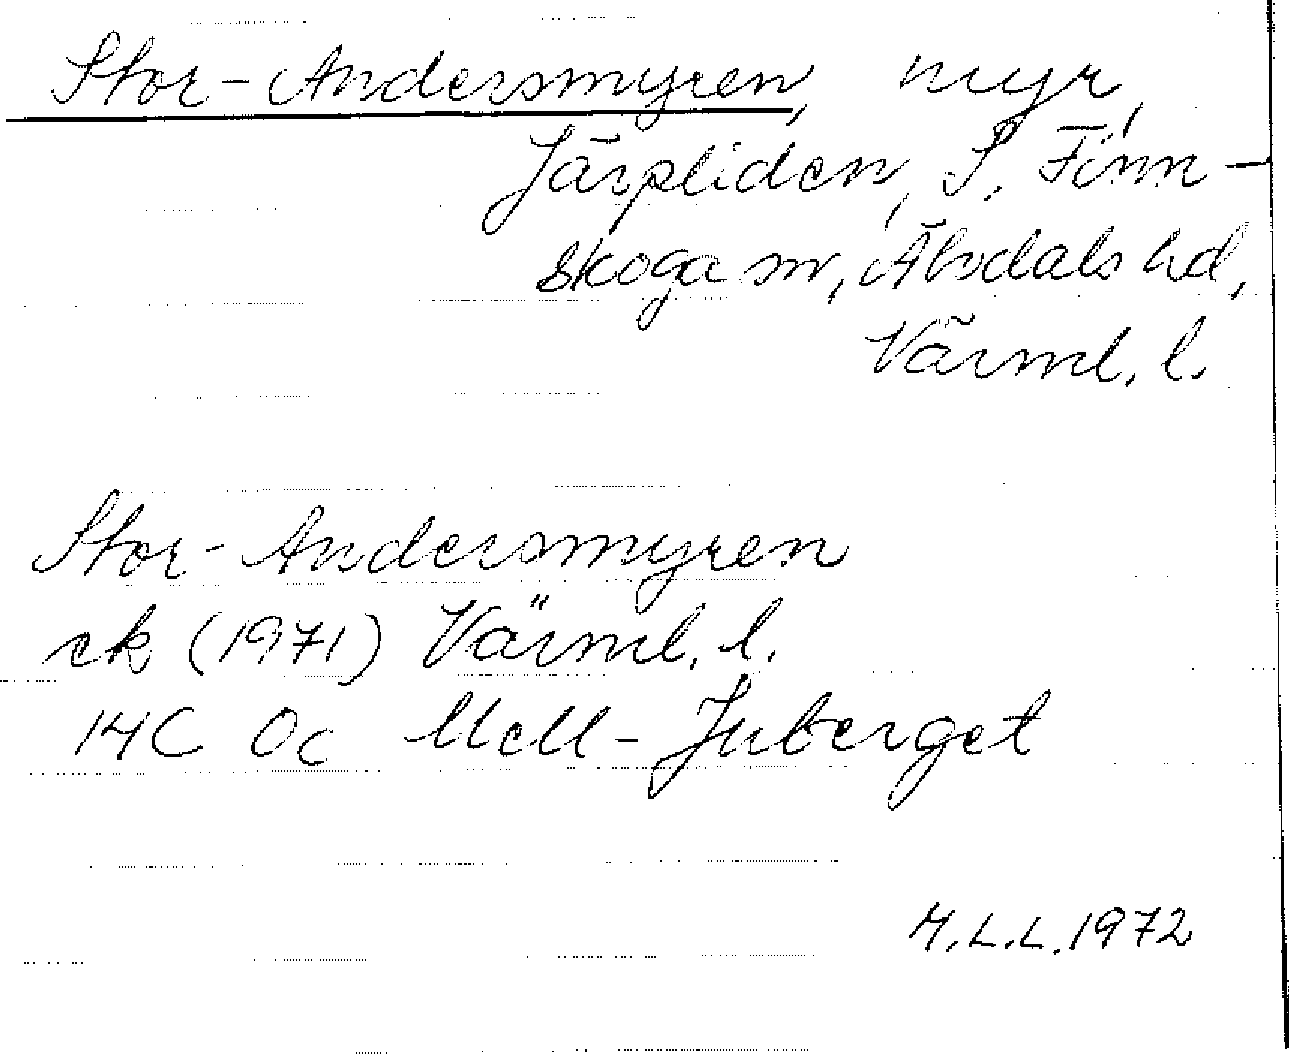 Stor-Andersmyren, myr,
Järpliden, S. Finn-
skoga sn, Älvdals hd,
Värml. l.
Stor-Andersmyren
ek (1971) Värml. l.
14C 0c Mell-Juberget
M.L.L. 1972